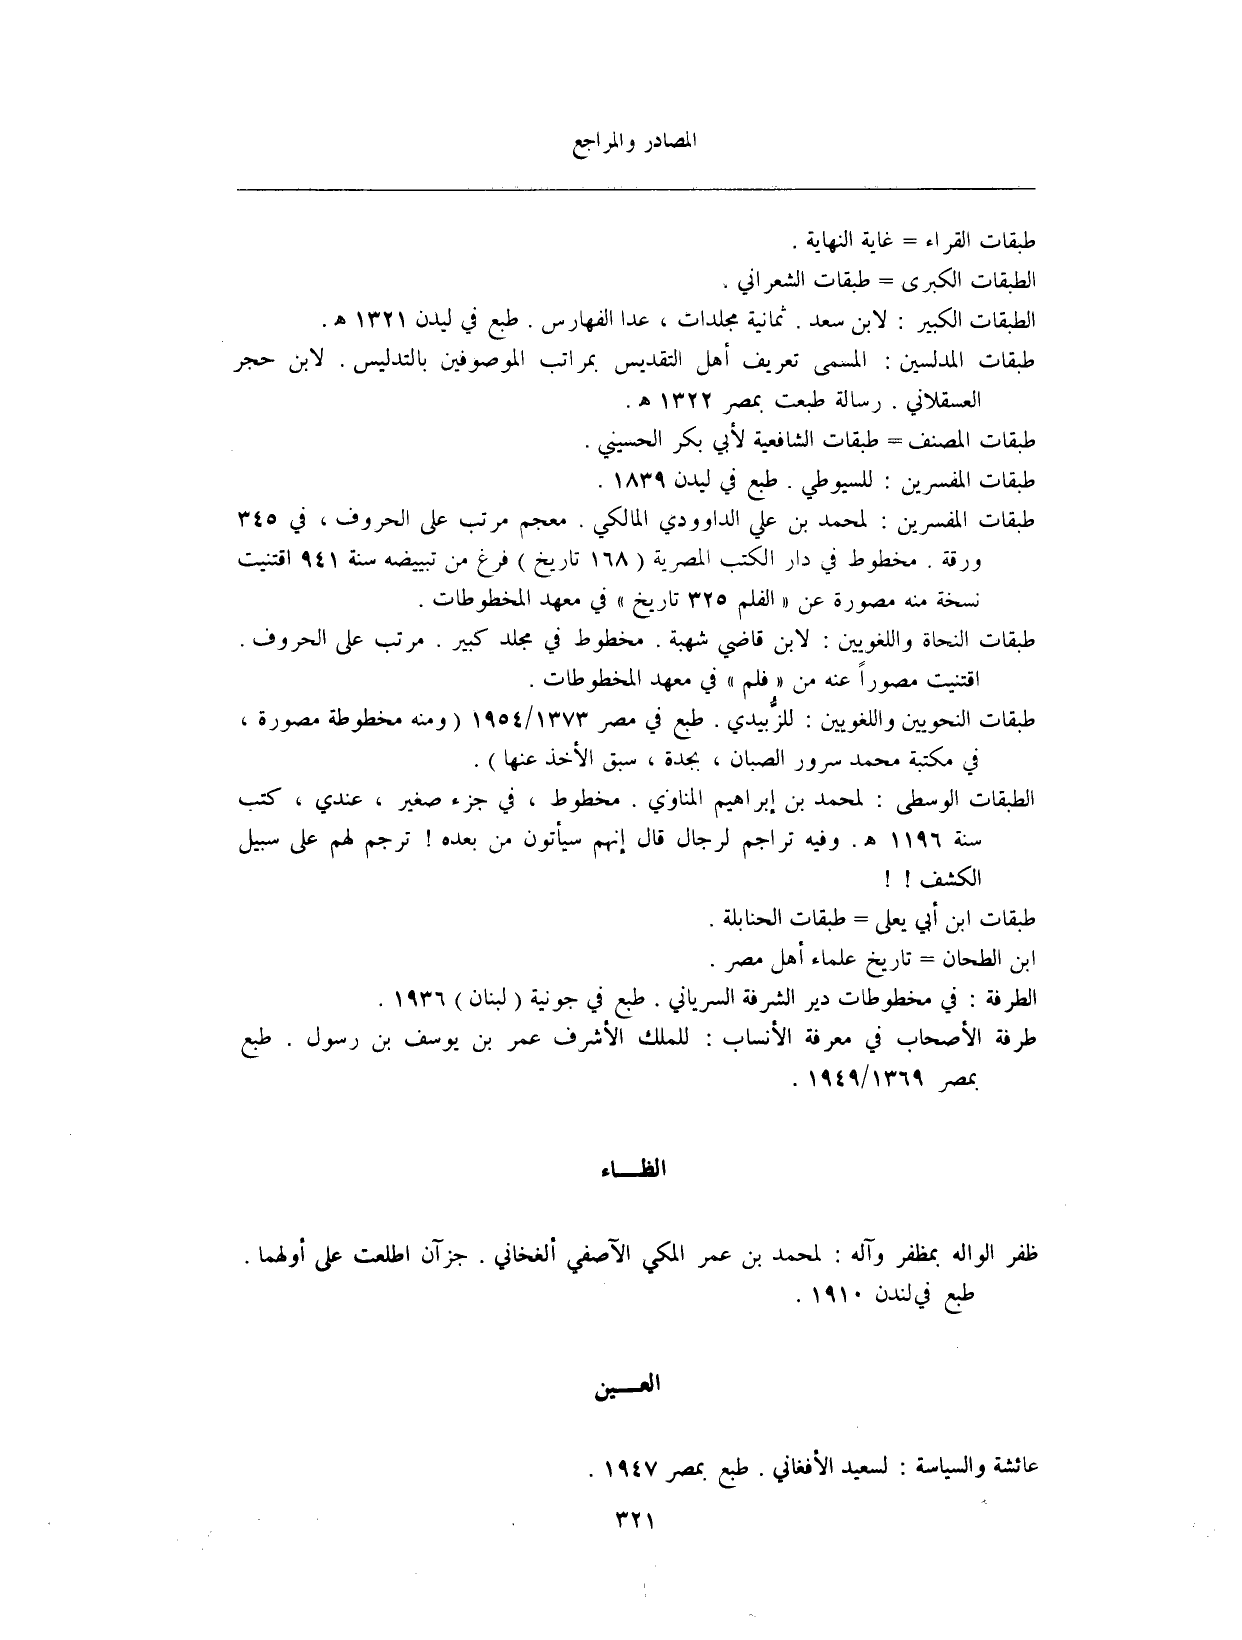 المصادر والمراجع
طبقات القراء = غاية النهاية .
الطبقات الكبرى = طبقات الشعراني .
الطبقات الكبير : لابن سعد . ثمانية مجلدات ، عدا الفهارس . طبع في ليدن ١٣٢١ هـ .
طبقات المدلسين : المسمى تعريف أهل التقديس بمراتب الموصوفين بالتدليس . لابن حجر
العسقلاني . رسالة طبعت بمصر ١٣٢٢ هـ .
طبقات المصنف = طبقات الشافعية لأبي بكر الحسيني .
طبقات المفسرين : للسيوطي . طبع في ليدن ١٨٣٩ .
طبقات المفسرين : لمحمد بن علي الداوودي المالكي . معجم مرتب على الحروف ، في ٣٤٥
ورقة . مخطوط في دار الكتب المصرية ( ١٦٨ تاريخ ) فرغ من تبييضه سنة ٩٤١ اقتنيت
نسخة منه مصورة عن « الفلم ٣٢٥ تاريخ » في معهد المخطوطات .
طبقات النحاة واللغويين : لابن قاضي شهبة . مخطوط في مجلد كبير . مرتب على الحروف .
اقتنيت مصوراً عنه من « فلم » في معهد المخطوطات .
طبقات النحويين واللغويين : للزُّبيدي . طبع في مصر ١٩٥٤/١٣٧٣ ( ومنه مخطوطة مصورة ،
في مكتبة محمد سرور الصبان ، بجدة ، سبق الأخذ عنها ) .
الطبقات الوسطى : لمحمد بن إبراهيم المناوي . مخطوط ، في جزء صغير ، عندي ، كتب
سنة ١١٩٦ هـ . وفيه تراجم لرجال قال إنهم سيأتون من بعده ! ترجم لهم على سبيل
الكشف ! !
طبقات ابن أبي يعلى = طبقات الحنابلة .
ابن الطحان = تاريخ علماء أهل مصر .
الطرفة : في مخطوطات دير الشرفة السرياني . طبع في جونية ( لبنان ) ١٩٣٦ .
طرفة الأصحاب في معرفة الأنساب : للملك الأشرف عمر بن يوسف بن رسول . طبع
بمصر ١٩٤٩/١٣٦٩ .
الظـــاء
ظفر الواله بمظفر وآله : لمحمد بن عمر المكي الآصفي ألغخاني . جزآن اطلعت على أولهما .
طبع في لندن ١٩١٠ .
العـــين
عائشة والسياسة : لسعيد الأفغاني . طبع بمصر ١٩٤٧ .
٣٢١